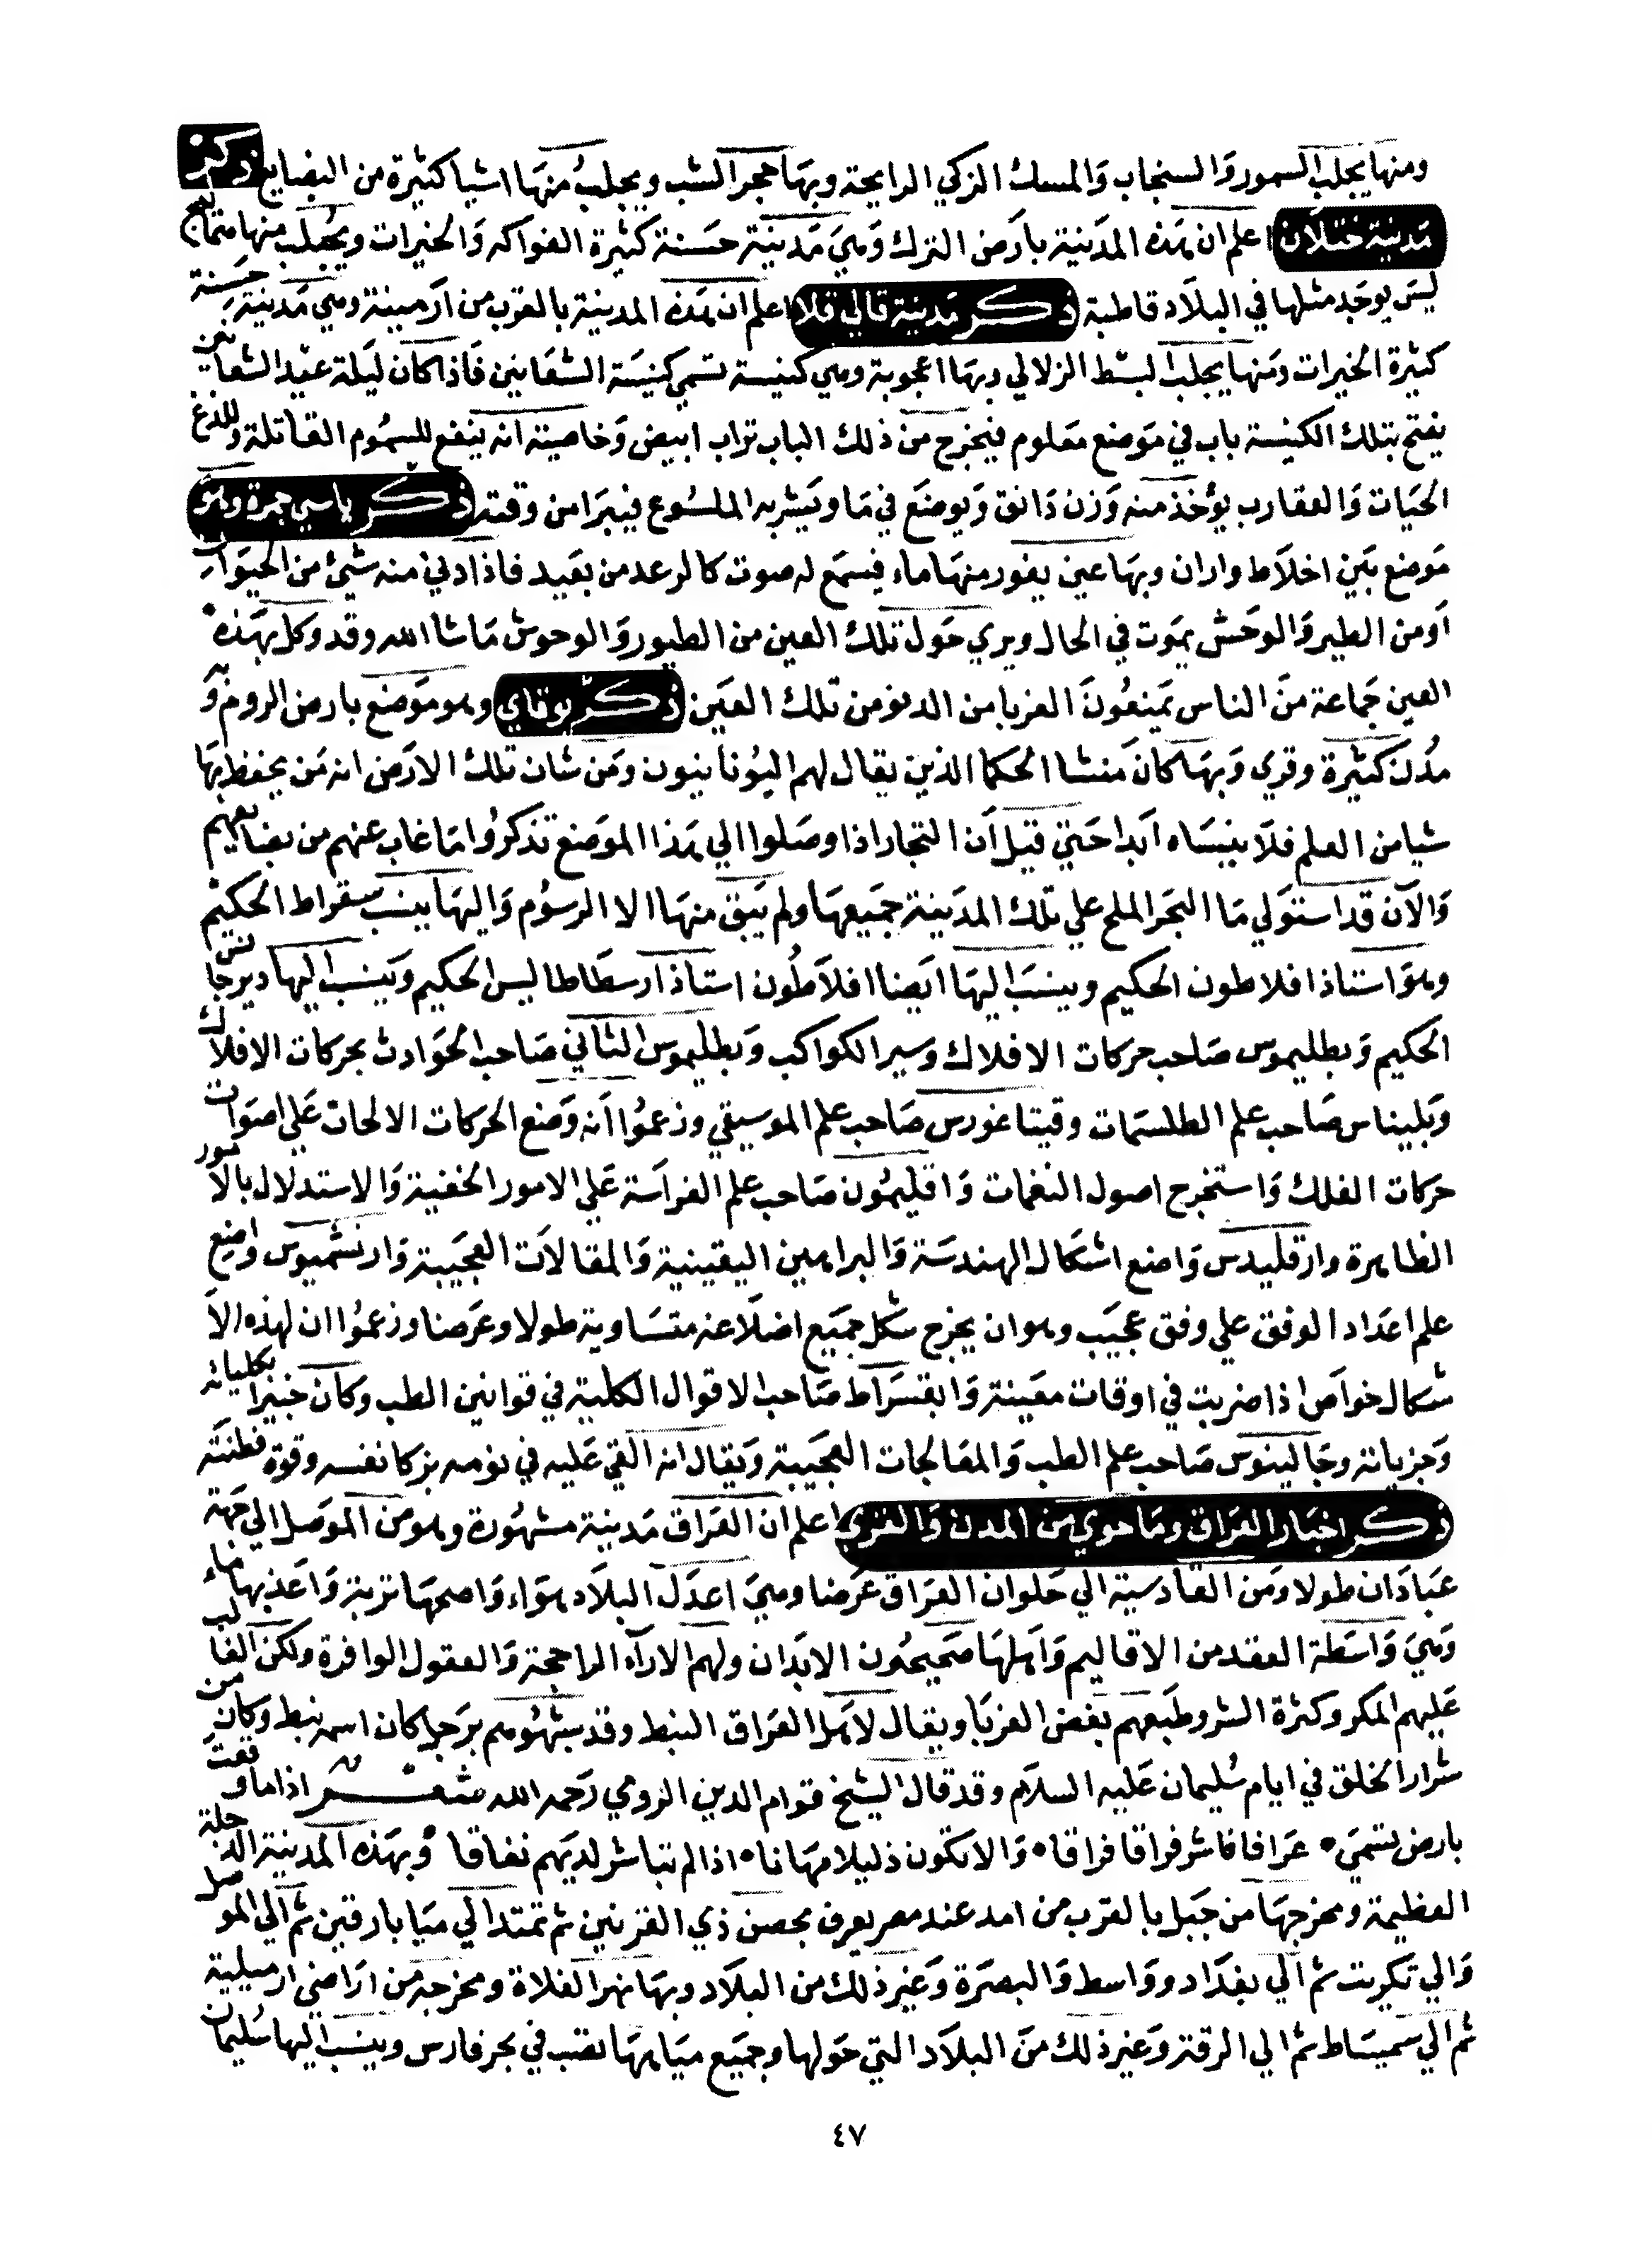 ومنها يجلب السمور والسنجاب والمسك الزكي الرايحة وبها حجر الشب ويجلب منها اشيا كثيرة من البضايع ذكر
مدينة ختلان اعلم ان هذه المدينة بارض الترك وهي مدينة حسنة كثيرة الفواكه والخيرات ويجلب منها
ليس يوجد مثلها في البلاد قاطبة ذكر مدينة قالي قلا اعلم ان هذه المدينة بالقرب من ارمينة وهي مدينة حسنة
كثيرة الخيرات ومنها يجلب البسط الزلالي وبها اعجوبة وهي كنيسة تسمي كنيسة الشعانين فاذا كان ليلة عيد الشعانين
يفتح بتلك الكنيسة باب في موضع معلوم فيخرج من ذلك الباب تراب ابيض وخاصيته انه ينفع للسموم القاتلة وللدغ
الحيات والعقارب يؤخذ منه وزن دانق ويوضع في ما ويشربه الملسوع فيبرا من وقته ذكر ياسي جمرة وهو
موضع بين اخلاط واران وبها عين يفور منها ماء فيسمع له صوت كالرعد من بعيد فاذا دني منه شئ من الحيوان
او من الطير والوحش يموت في الحال ويري حول تلك العين من الطيور والوحوش ما شا الله وقد وكل بهذه
العين جماعة من الناس يمنعون الغربا من الدنو من تلك العين ذكر وهو موضع بارض الروم وبه
مدن كثيرة وقري وبها كان منشا الحكما الذين يقال لهم اليونانيون ومن شان تلك الارض انه من يحفظ بها
شيا من العلم فلا ينساه ابدا حتي قيل ان التجار اذا وصلوا الي هذا الموضع تذكروا ما غاب عنهم من بضايعهم
والآن قد استولي ما البحر الملح علي تلك المدينة جميعها ولم يبق منها الا الرسوم واليها ينسب سقراط الحكيم
وهو استاذ افلاطون الحكيم وينسب اليها ايضا افلاطون استاذ ارسطاطاليس الحكيم وينسب اليها ديرجانس
الحكيم وبطليموس صاحب حركات الافلاك وسير الكواكب وبطليموس الثاني صاحب الحوادث بحركات الافلاك
وبليناس صاحب علم الطلسمات وفيثاغورس صاحب علم الموسيقي وزعموا انه وضع الحركات الالحان علي اصوات
حركات الفلك واستخرج اصول النغمات واقليمون صاحب علم الفراسة علي الامور الخفية والاستدلال بالامور
الظاهرة وارقليدس واضع اشكال الهندسة والبراهين اليقينية والمقالات العجيبة وارشميوس واضع
علم اعداد الوفق علي وفق عجيب وهو ان يخرج شكل جميع اضلاعه متساوية طولا وعرضا وزعموا ان لهذه الا
شكال خواص اذا ضربت في اوقات معينة وابقراط صاحب الاقوال الكلية في قوانين الطب وكان خبيرا بكلياته
وجزياته وجالينوس صاحب علم الطب والمعالجات العجيبة ويقال انه القي عليه في نومه بزكا نفسه وقوة فطنته
ذكر اخبار العراق وما حوي من المدن والقري اعلم ان العراق مدينة مشهورة وهو من الموصل الي جهة
عبادان طولا ومن القادسية الي حلوان العراق عرضا وهي اعدل البلاد هواء واصحها تربة واعذبها ماء
وهي واسطة العقد من الاقاليم واهلها صحيحون الابدان ولهم الارآء الراجحة والعقول الوافرة ولكن الغالب
عليهم المكر وكثرة الشر وطبعهم بغض الغربا ويقال لاهل العراق النبط وقد شبهوهم برجل كان اسمه نبط وكان من
شرار الخلق في ايام سليمان عليه السلام وقد قال الشيخ قوام الدين الرومي رحمه الله شعر اذا ما وقعت
بارض تسمي عراقا فاشر فراقا فراقا والا تكون ذليلا مهانا اذا لم تباشر لديهم نفاقا وبهذه المدينة الدجلة
العظيمة ومخرجها من جبل بالقرب من امد عند مصر يعرف بحصن ذي القرنين ثم تمتد الي ميابارقين ثم الي الموصل
والي تكريت ثم الي بغداد وواسط والبصرة وغير ذلك من البلاد وبها نهر الفلاة ومخرجه من اراضي ارمينية
ثم الي سميساط ثم الي الرقة وغير ذلك من البلاد التي حولها وجميع مياهها تصب في بحر فارس وينسب اليها سليمان
٤٧